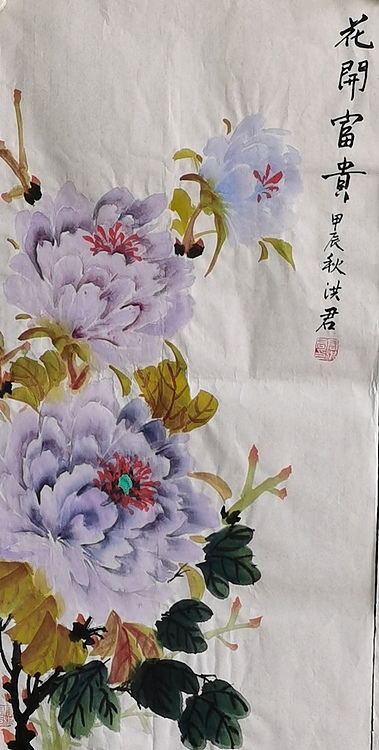 花開富貴
甲辰秋洪君